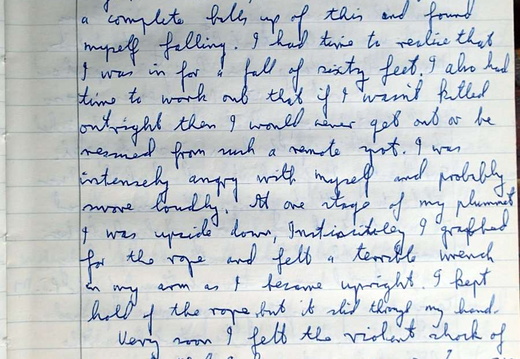 a complete balls up of this and found
myself falling. I had time to realise that
I was in for a fall of sixty feet. I also had
time to work out that if I wasn't killed
outright then I would never get out or be
rescued from such a remote spot. I was
intensely angry with myself and probably
swore loudly. At one stage of my plummet
I was upside down, Instinctively I grabbed
for the rope and felt a terrible wrench
on my arm as I became upright. I kept
hold of the rope but it slid through my hand.
Very soon I felt the violent shock of